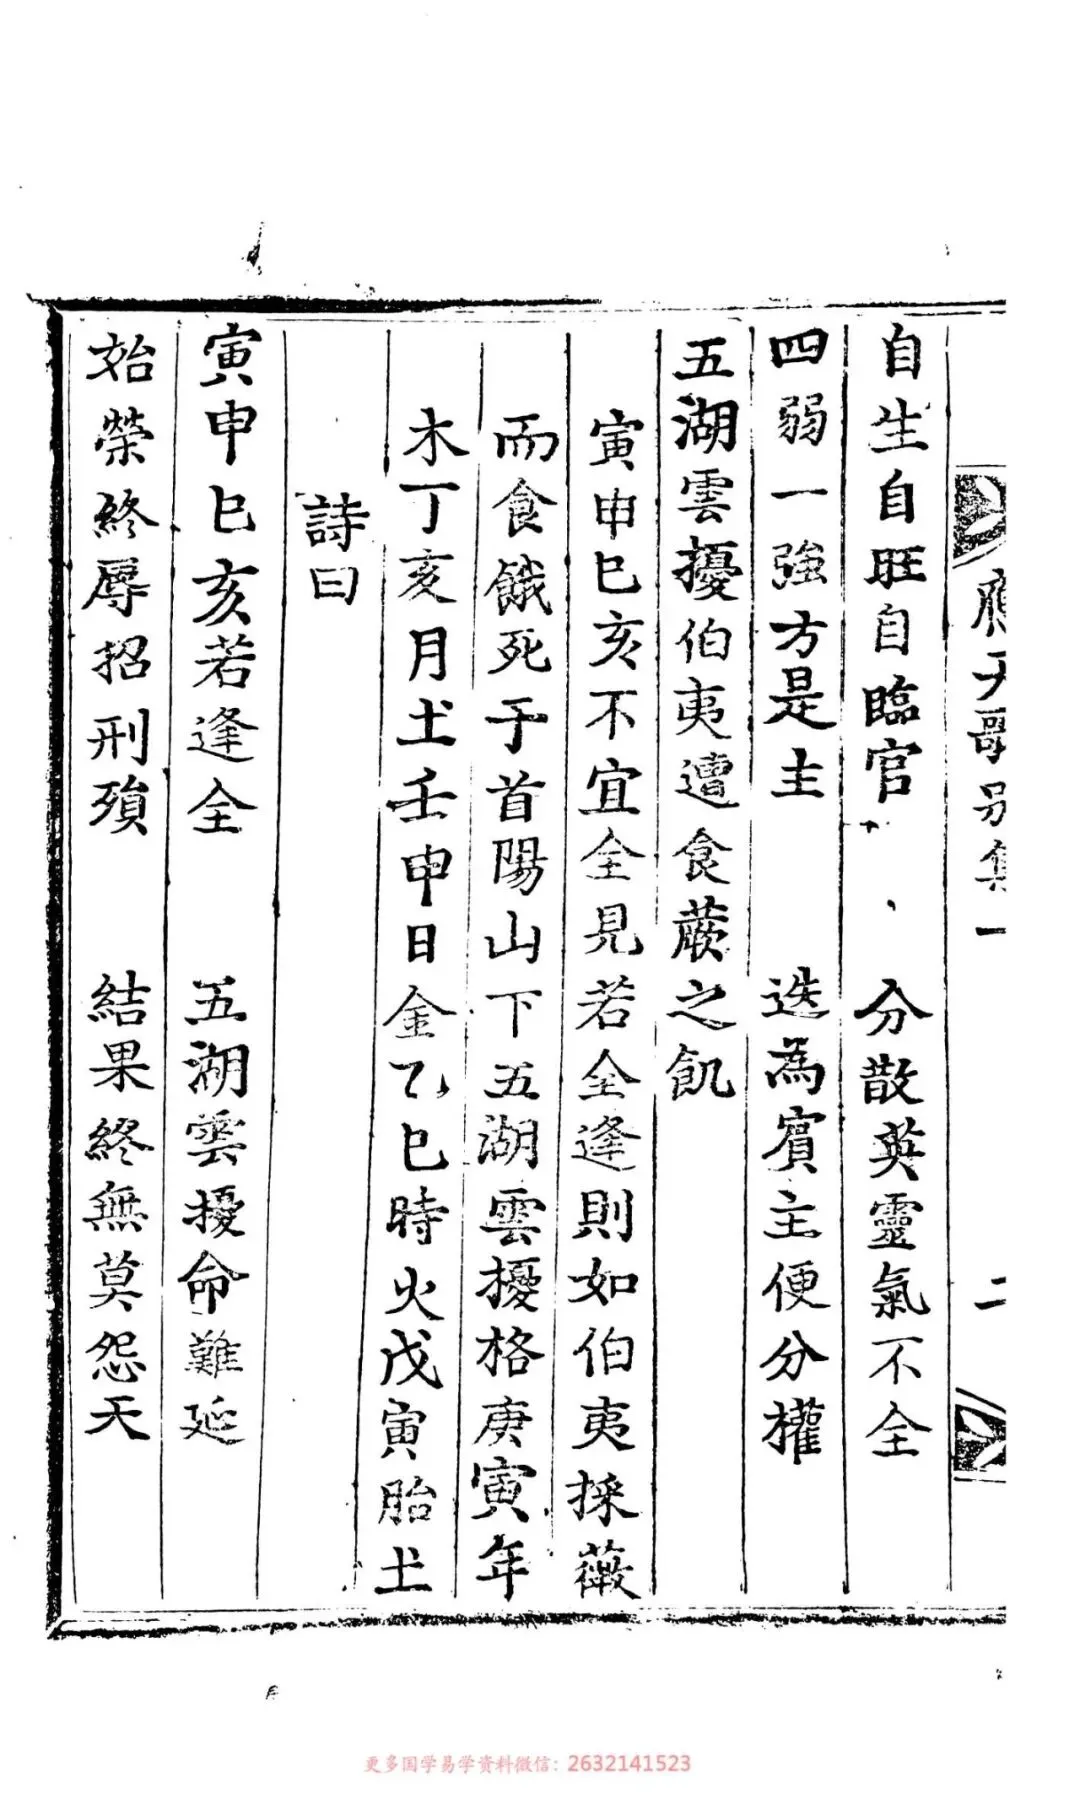 天歌別集一
二
自生自旺自臨官　分散英靈氣不全
四弱一強方是主　迭為賓主便分權
五湖雲擾伯夷遭食蕨之飢
寅申巳亥不宜全見若全逢則如伯夷採薇
而食餓死于首陽山下五湖雲擾格庚寅年
木丁亥月土壬申日金乙巳時火戊寅胎土
詩曰
寅申巳亥若逢全　五湖雲擾命難延
始榮終辱招刑殞　結果終無莫怨天
更多国学易学资料微信：2632141523